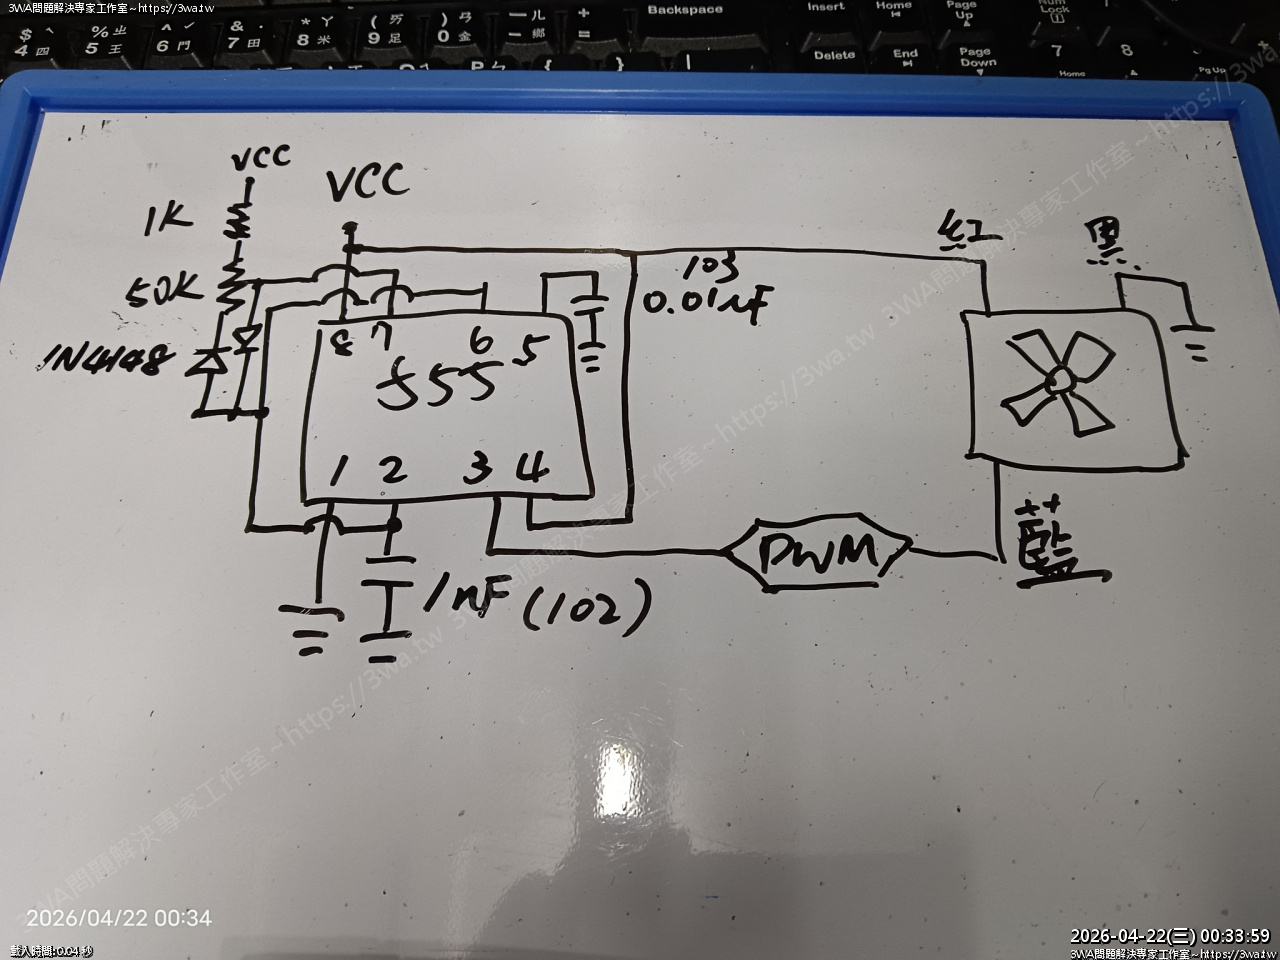 3WA問題解決專家工作室~https://3wa.tw
Backspace
Insert
Home
Page Up
Num Lock
$ 4
% 5
^ 6
& 7
* 8
( 9
) 0
Delete
End
Page Down
7 Home
8
Pg Up
VCC
VCC
1K
50K
1N4148
103
0.01uF
紅
黑
8 7 6 5
555
1 2 3 4
PWM
藍
1nF (102)
3WA問題解決專家工作室~https://3wa.tw
2026/04/22 00:34
載入時間:0.04 秒
2026-04-22(三) 00:33:59
3WA問題解決專家工作室~https://3wa.tw